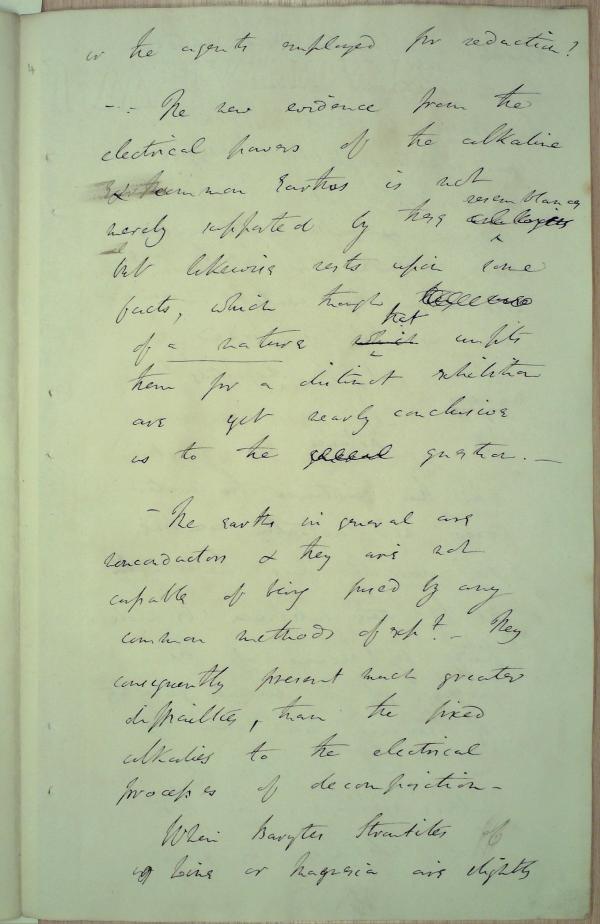 or the agents employed for reduction?
— The new evidence from the
electrical powers of the alkaline
& common Earths is not
resemblances
merely supported by these analogies
but likewise rests upon some
facts, which though
that
of a nature which unfits
them for a distinct exhibition
are yet nearly conclusive
as to the general question. —
— The earths in general are
nonconductors & they are not
capable of being fused by any
common methods of expt. — They
consequently present much greater
difficulties, than the fixed
alkalies to the electrical
processes of decomposition —
When Barytes Strontites
or Lime or Magnesia are slightly